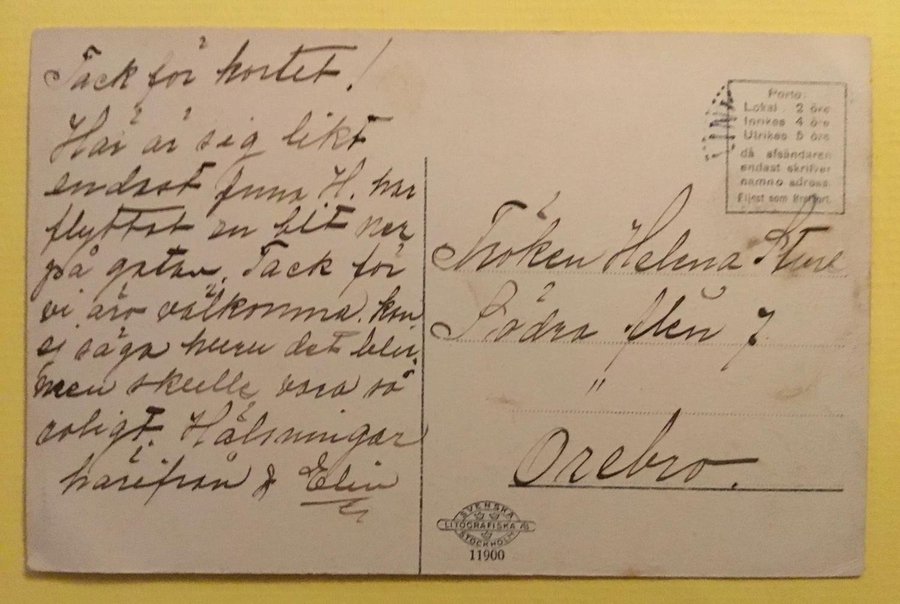 Tack för kortet!
Här är sig likt
endast Juna H. har
flyttat en bit ner
på gatan. Tack för
vi äro välkomna. kan
ej säga huru det blir,
men skulle vara så
roligt. Hälsningar
härifrån & Elin
Porto:
Lokal . 2 öre
Inrikes 4 öre
Utrikes 5 öre
då afsändaren
endast skrifver
namn o adress
Eljest som brefkort.
Fröken Helena Sture
Södra 7
"
Örebro.
SVENSKA
LITOGRAFISKA AB
STOCKHOLM
11900